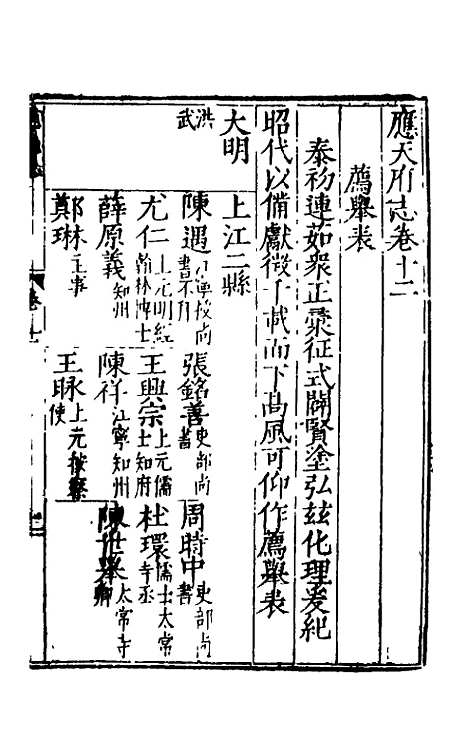 應天府志卷十二
薦舉表
泰初連茹衆正彚征式闢賢塗弘玆化理爰紀
昭代以備獻徵千載而下髙風可仰作薦舉表
大明 上江二縣
洪武
陳遇 江寧授尚書不 張銘善 吏部尚書 周時中 吏部尚書
尤仁 上元明經翰林博士 王興宗 上元儒士知府 杜環 儒士太常寺丞
薛原義 知州 陳祥 江寧知州 陳世舉 太常寺卿
鄭琳 主事 王脉 上元按察使